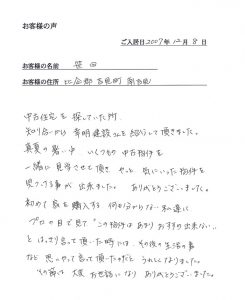 お客様の声
ご入居日 2007年 12月 8日
お客様の名前 笹田
お客様の住所 比企郡吉見町南吉見
中古住宅を探していた所
知り合いから幸明建設さんを紹介して頂きました。
真夏の暑い中 いくつもの中古物件を
一緒に見学させて頂き やっと気にいった物件を
見つける事が出来ました。 ありがとうございました。
初めて家を購入する何も分からない私達に
プロの目で見て“この物件はあまりおすすめ出来ない„
とはっきり言って頂いた時には その後の生活の事
など思いやって言って頂いたのだとうれしくなりました。
その節は大変お世話になりありがとうございました。